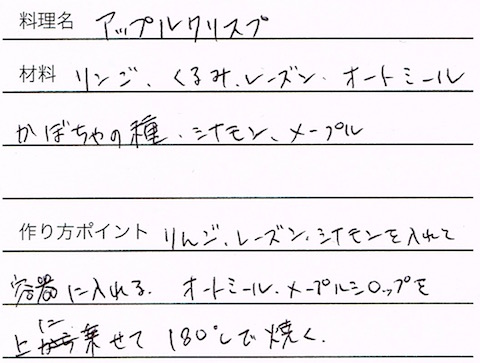 料理名 アップルクリスプ
材料 リンゴ、くるみ、レーズン、オートミール
かぼちゃの種、シナモン、メープル
作り方ポイント りんご、レーズン、シナモンを入れて
容器に入れる。オートミール、メープルシロップを
上に乗せて 180℃で焼く。